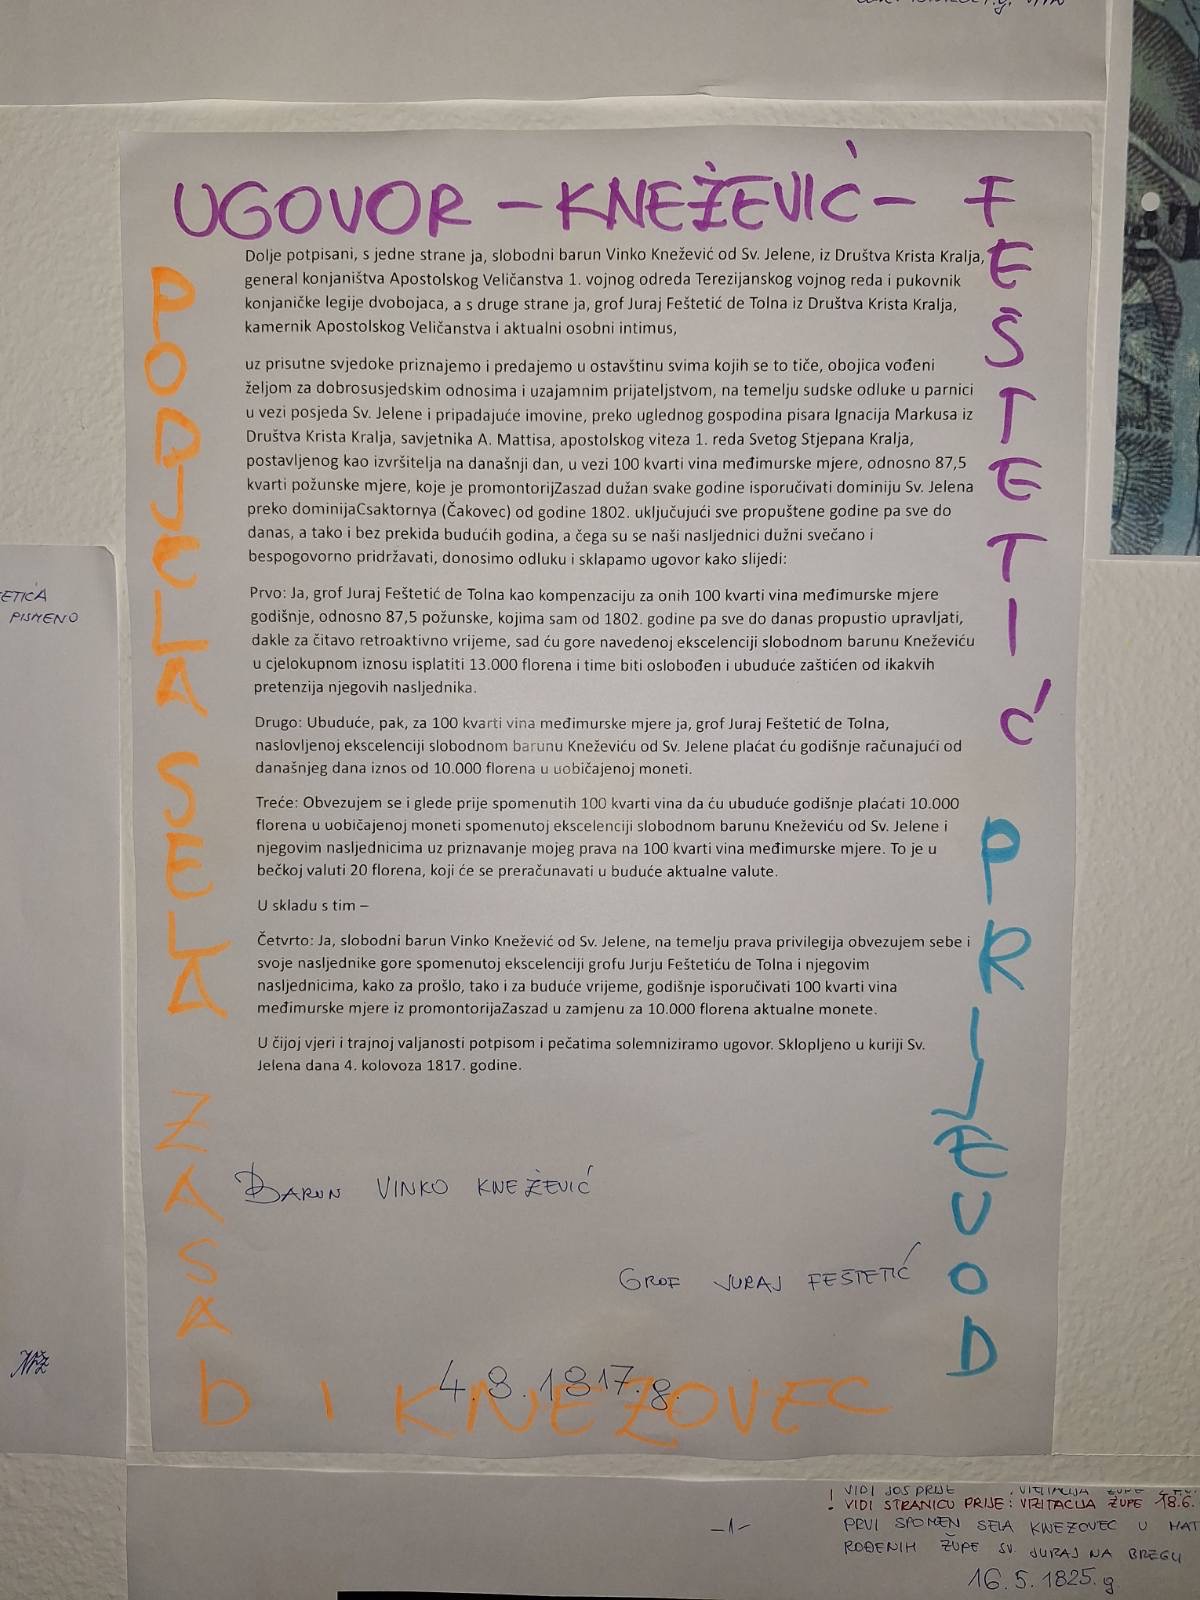 UGOVOR – KNEŽEVIĆ – FEŠTETIĆ
PODJELA SELA ZASAD I KNEZOVEC
PRIJEVOD
Dolje potpisani, s jedne strane ja, slobodni barun Vinko Knežević od Sv. Jelene, iz Društva Krista Kralja,
general konjaništva Apostolskog Veličanstva 1. vojnog odreda Terezijanskog vojnog reda i pukovnik
konjaničke legije dvobojaca, a s druge strane ja, grof Juraj Feštetić de Tolna iz Društva Krista Kralja,
kamernik Apostolskog Veličanstva i aktualni osobni intimus,
uz prisutne svjedoke priznajemo i predajemo u ostavštinu svima kojih se to tiče, obojica vođeni
željom za dobrosusjedskim odnosima i uzajamnim prijateljstvom, na temelju sudske odluke u parnici
u vezi posjeda Sv. Jelene i pripadajuće imovine, preko uglednog gospodina pisara Ignacija Markusa iz
Društva Krista Kralja, savjetnika A. Mattisa, apostolskog viteza 1. reda Svetog Stjepana Kralja,
postavljenog kao izvršitelja na današnji dan, u vezi 100 kvarti vina međimurske mjere, odnosno 87,5
kvarti požunske mjere, koje je promontorijZaszad dužan svake godine isporučivati dominiju Sv. Jelena
preko dominijaCsaktornya (Čakovec) od godine 1802. uključujući sve propuštene godine pa sve do
danas, a tako i bez prekida budućih godina, a čega su se naši nasljednici dužni svečano i
bespogovorno pridržavati, donosimo odluku i sklapamo ugovor kako slijedi:
Prvo: Ja, grof Juraj Feštetić de Tolna kao kompenzaciju za onih 100 kvarti vina međimurske mjere
godišnje, odnosno 87,5 požunske, kojima sam od 1802. godine pa sve do danas propustio upravljati,
dakle za čitavo retroaktivno vrijeme, sad ću gore navedenoj ekscelenciji slobodnom barunu Kneževiću
u cjelokupnom iznosu isplatiti 13.000 florena i time biti oslobođen i ubuduće zaštićen od ikakvih
pretenzija njegovih nasljednika.
Drugo: Ubuduće, pak, za 100 kvarti vina međimurske mjere ja, grof Juraj Feštetić de Tolna,
naslovljenoj ekscelenciji slobodnom barunu Kneževiću od Sv. Jelene plaćat ću godišnje računajući od
današnjeg dana iznos od 10.000 florena u uobičajenoj moneti.
Treće: Obvezujem se i glede prije spomenutih 100 kvarti vina da ću ubuduće godišnje plaćati 10.000
florena u uobičajenoj moneti spomenutoj ekscelenciji slobodnom barunu Kneževiću od Sv. Jelene i
njegovim nasljednicima uz priznavanje mojeg prava na 100 kvarti vina međimurske mjere. To je u
bečkoj valuti 20 florena, koji će se preračunavati u buduće aktualne valute.
U skladu s tim –
Četvrto: Ja, slobodni barun Vinko Knežević od Sv. Jelene, na temelju prava privilegija obvezujem sebe i
svoje nasljednike gore spomenutoj ekscelenciji grofu Jurju Feštetiću de Tolna i njegovim
nasljednicima, kako za prošlo, tako i za buduće vrijeme, godišnje isporučivati 100 kvarti vina
međimurske mjere iz promontorijaZaszad u zamjenu za 10.000 florena aktualne monete.
U čijoj vjeri i trajnoj valjanosti potpisom i pečatima solemniziramo ugovor. Sklopljeno u kuriji Sv.
Jelena dana 4. kolovoza 1817. godine.
BARUN VINKO KNEŽEVIĆ
GROF JURAJ FEŠTETIĆ
4.8.1817.g.
ETIĆA
PISMENO
-1-
! VIDI JOŠ PRIJE
! VIDI STRANICU PRIJE: VIZITACIJA ŽUPE 18.6.
PRVI SPOMEN SELA KNEZOVEC U MAT
ROĐENIH ŽUPE SV. JURAJ NA BREGU
16.5.1825.g.